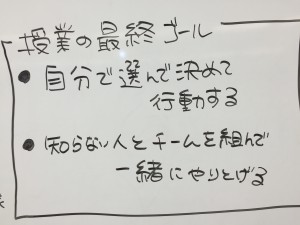 授業の最終ゴール
● 自分で選んで決めて
行動する
● 知らない人とチームを組んで
一緒にやりとげる